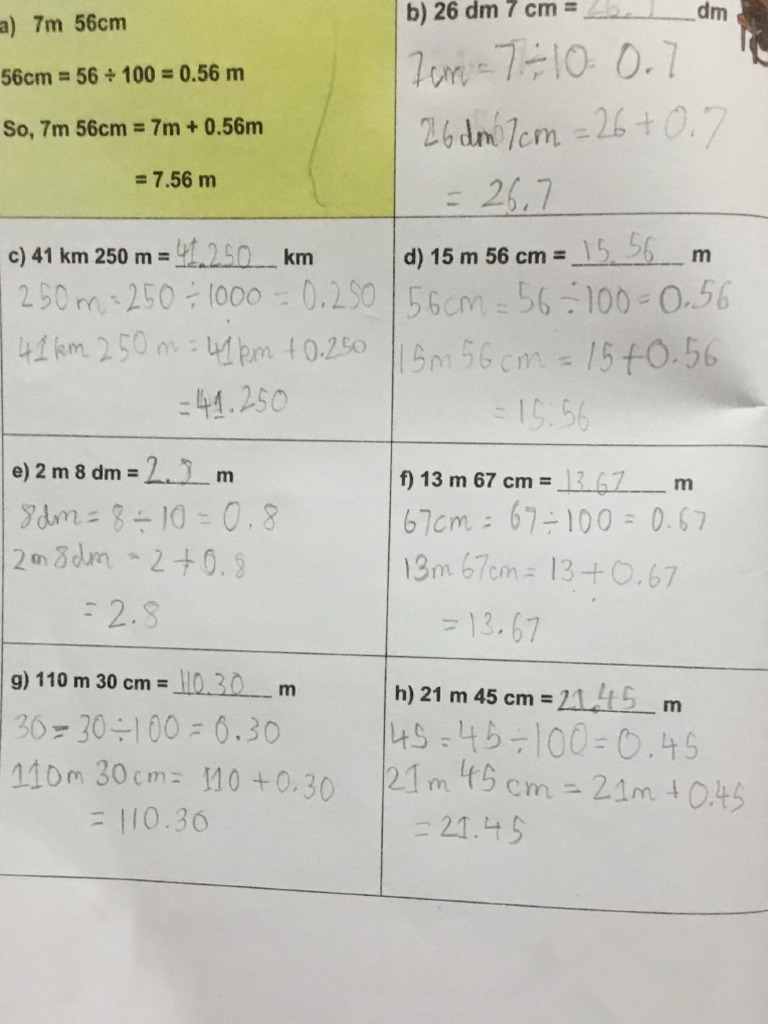 a) 7m 56cm
56cm = 56 ÷ 100 = 0.56 m
So, 7m 56cm = 7m + 0.56m
= 7.56 m
b) 26 dm 7 cm = 26.7 dm
7cm = 7÷10 = 0.7
26dm 7cm = 26 + 0.7
= 26.7
c) 41 km 250 m = 41.250 km
250m = 250 ÷ 1000 = 0.250
41km 250m = 41km + 0.250
= 41.250
d) 15 m 56 cm = 15.56 m
56cm = 56 ÷ 100 = 0.56
15m 56cm = 15 + 0.56
= 15.56
e) 2 m 8 dm = 2.8 m
8dm = 8 ÷ 10 = 0.8
2m 8dm = 2 + 0.8
= 2.8
f) 13 m 67 cm = 13.67 m
67cm = 67 ÷ 100 = 0.67
13m 67cm = 13 + 0.67
= 13.67
g) 110 m 30 cm = 110.30 m
30 = 30 ÷ 100 = 0.30
110m 30cm = 110 + 0.30
= 110.30
h) 21 m 45 cm = 21.45 m
45 = 45 ÷ 100 = 0.45
21m 45cm = 21m + 0.45
= 21.45